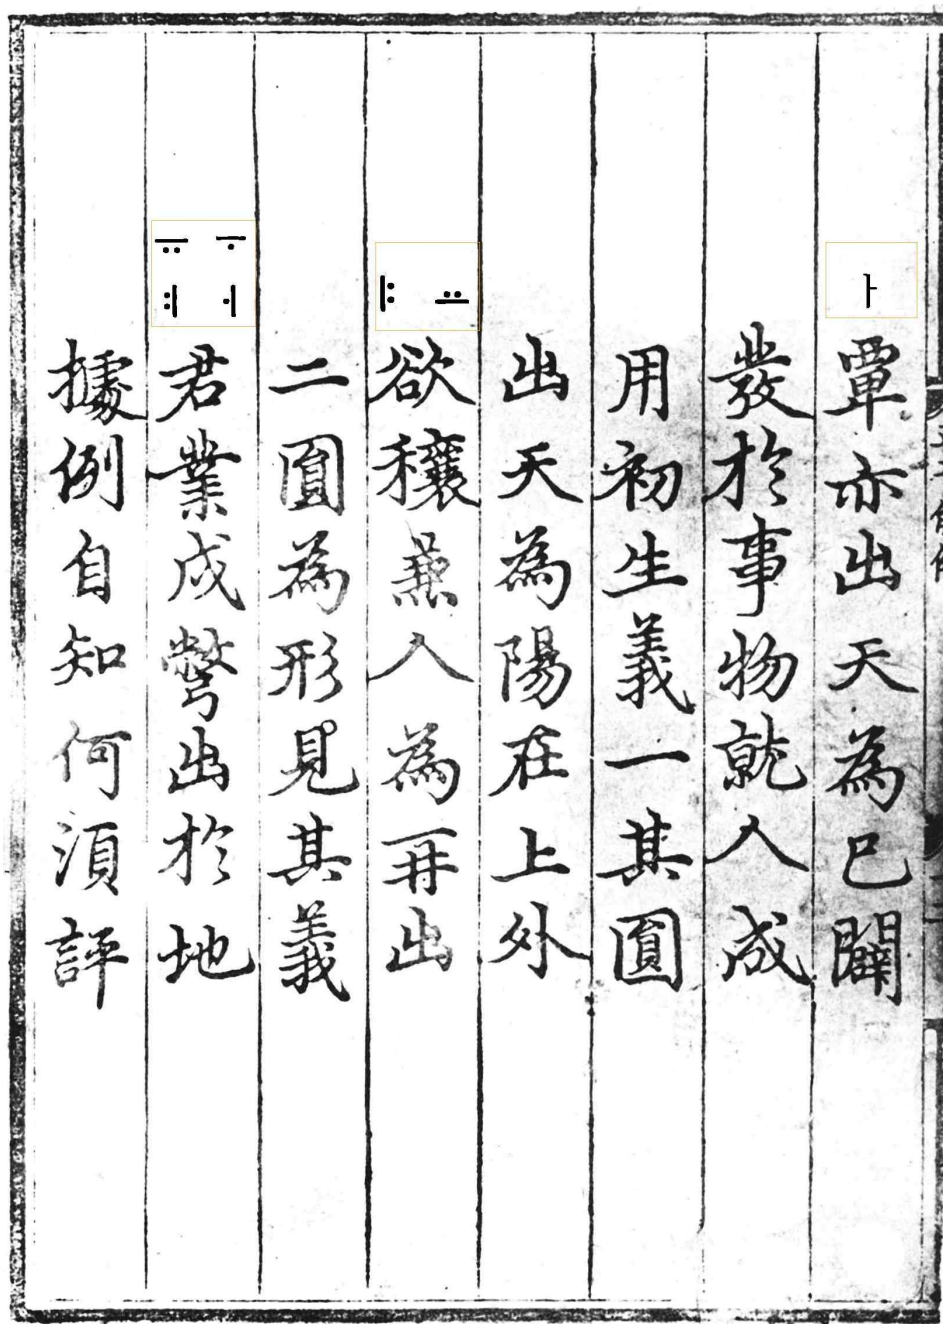 ㅏ覃亦出天為已闢
發於事物就人成
用初生義一其圓
出天為陽在上外
ㅛㅑ欲穰兼人為再出
二圓為形見其義
ㅜㅓㅠㅕ君業戌彆出於地
據例自知何須評